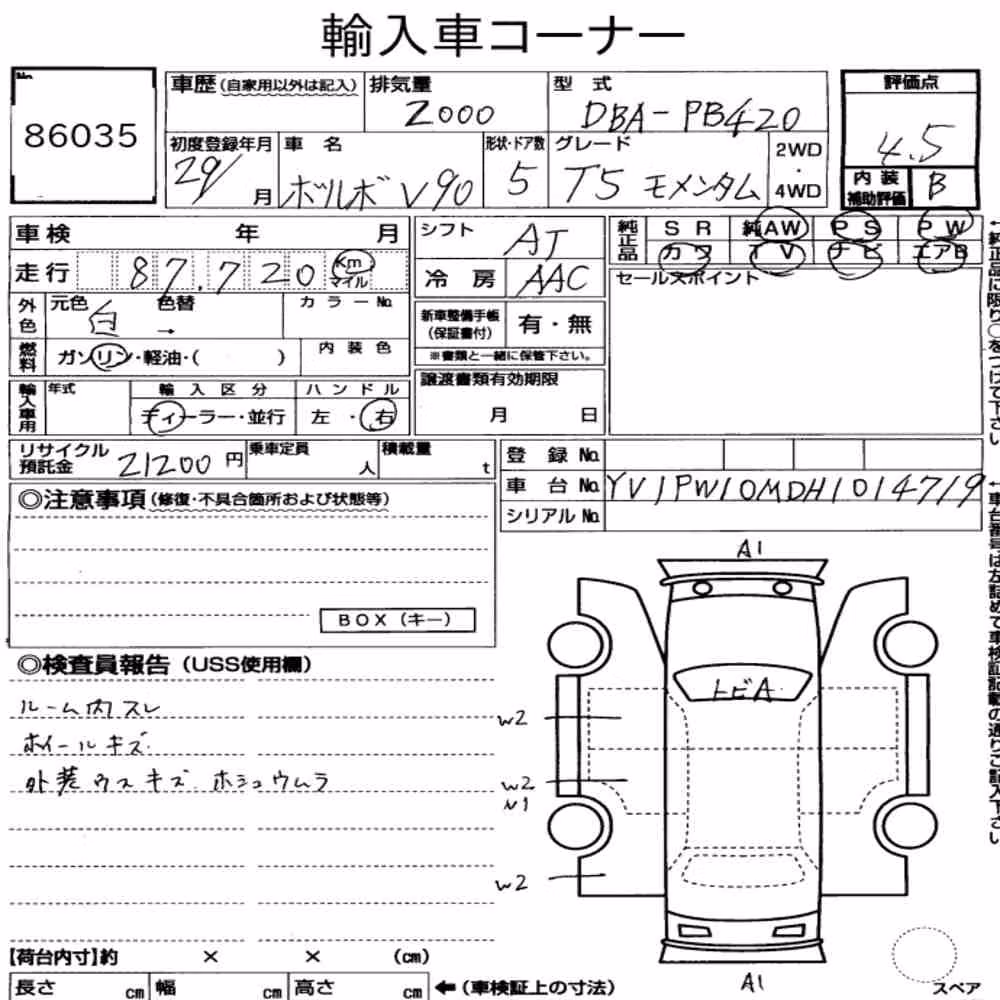 輸入車コーナー
No.
86035
車歴(自家用以外は記入) 排気量 型 式 評価点
2000 DBA-PB420 4.5
初度登録年月 車 名 形状・ドア数 グレード 2WD・4WD
29/ 月 ボルボ V90 5 T5 モメンタム
内装補助評価 B
車検 年 月 シフト AT
走行 87,720 Km マイル 冷 房 AAC
純正品 S R 純AW P S P W
カワ T V ナビ エアB
←純正品に限り○をつけて下さい
セールスポイント
外色 元色 白 色替 → カラーNo.
新車整備手帳(保証書付) 有・無
※書類と一緒に保管下さい。
燃料 ガソリン・軽油・( ) 内 装 色
譲渡書類有効期限
月 日
輸入車用 年式 輸 入 区 分 ハ ン ド ル
ディーラー・並行 左 ・ 右
リサイクル預託金 21200円 乗車定員 人 積載量 t
登 録 No.
車 台 No. YV1PW10MDH1014719
シリアル No.
←車台番号は左詰めで車検証記載の通りご記入下さい。
◎注意事項(修復・不具合箇所および状態等)
BOX(キー)
◎検査員報告(USS使用欄)
ルーム内スレ
ホイールキズ
外装ウスキズ ホシュウムラ
A1
トビA
W2
W2
U1
W2
A1
スペア
【荷台内寸】約 × × (cm)
長さ cm 幅 cm 高さ cm ←(車検証上の寸法)